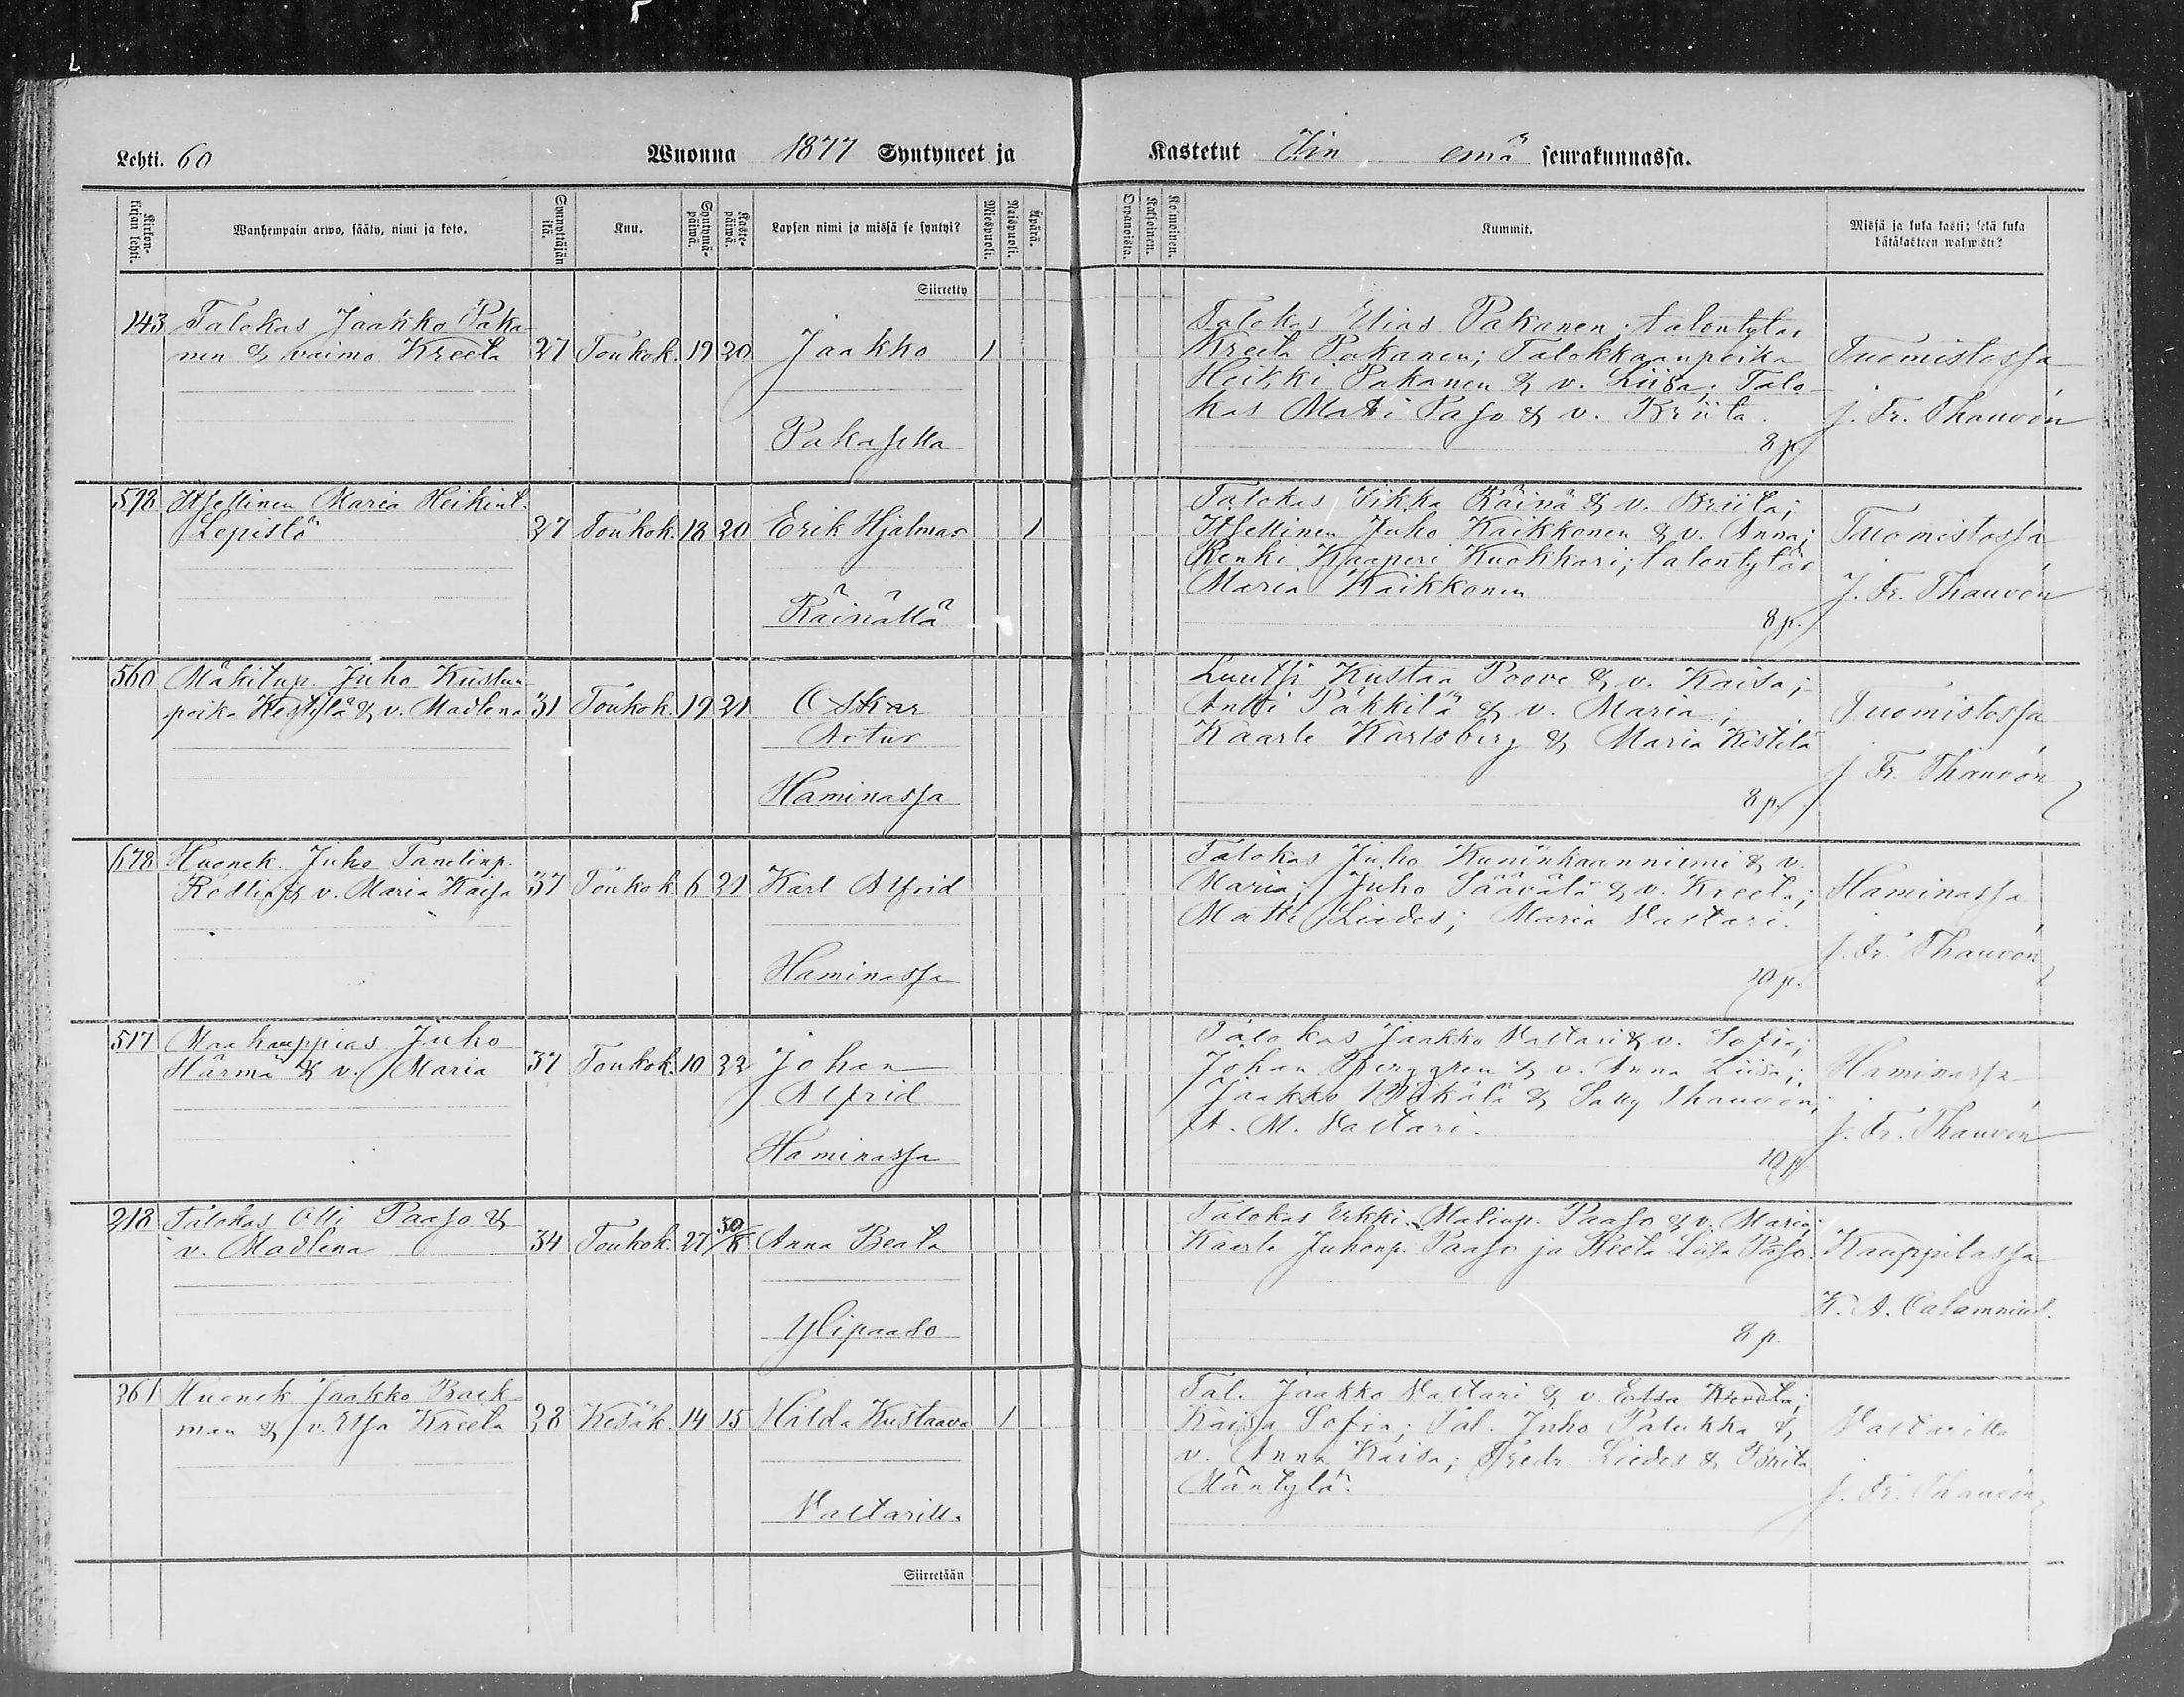 Lehti. 60
Wuonna 1877 Syntyneet ja
Kastetut Iin emä seurakunnassa.
Kirkon-kirjan lehti.
Wanhempain arwo, sääty, nimi ja koto.
Synnyttäjän ikä.
Kuu.
Syntymä-päiwä.
Kaste-päiwä.
Lapsen nimi ja missä se syntyi?
Miespuoli.
Naispuoli.
Äpärä.
Orpanaista.
Kaksoinen.
Kolmoinen.
Kummit.
Missä ja kuka kasti; sekä kuka hätäkasteen wahwisti?
Siirretty
143 Talokas Jaakko Paka
nen & vaimo Kreeta 27 Toukok. 19 20 Jaakko 1
Pakasella
Talokas Elias Pakanen; talontytär
Kreeta Pakanen; Talokkaanpoika
Heikki Pakanen & v. Liisa; Talo
kas Matti Paso & v. Briita.
8 p.
Tuomistossa
J. Fr. Thauvón
598 Itsellinen Maria Heikint.
Lepistö 27 Toukok. 18 20 Erik Hjalmar 1
Räinällä
Talokas Sikka Räinä & v. Briita;
Itsellinen Juho Kaikkonen & v. Anna;
Renki Kaaperi Kuokkari; talontytär
Maria Kaikkonen
8 p.
Tuomistossa
J. Fr. Thauvón
560 Mäkitup. Juho Kustaa
poika Kestilä & v. Madlena 31 Toukok. 19 21 Oskar
Artur
Haminassa
Luutsi Kustaa Poove & v. Kaisa;
Antti Päkkilä & v. Maria;
Kaarle Karlsberg & Maria Kestilä
8 p.
Tuomistossa
J. Fr. Thauvón
678 Huonek. Juho Tanelinp.
Rödlin & v. Maria Kaisa 37 Toukok. 6 21 Karl Alfrid
Haminassa
Talokas Juho Kuninkaanniemi & v.
Maria; Juho Säävälä & v. Kreeta;
Matti Liedes; Maria Vattari.
10 p.
Haminassa
J. Fr. Thauvón
517 Maakauppias Juho
Härmä & v. Maria 37 Toukok. 10 22 Johan
Alfrid
Haminassa
Talokas Jaakko Vattari & v. Sofia;
Johan Berggren & v. Anna Liisa;
Jaakko Mökälä & Sally Thauvón;
A. M. Vattari.
10 p.
Haminassa
J. Fr. Thauvón
218 Talokas Olli Paaso &
v. Madlena 34 Toukok. 27 30/6 Anna Beata
Ylipaaso
Talokas Erkki Matinp. Paaso & v. Maria;
Kaarle Juhonp. Paaso ja Reeta Liisa Paso.
8 p.
Kauppilassa
K. A. Calamnius.
261 Huonek Jaakko Back-
man & v. Elsa Kreeta 28 Kesäk. 14 15 Hilda Kustaava 1
Vattarilla
Tal. Jaakko Vattari & v. Elsa Kreeta;
Kaisa Sofia; Tal. Juho Palukka &
v. Anna Kaisa; Fredr. Liedes & Briita
Mäntylä.
Vattarilla
J. Fr. Thauvón
Siirretään